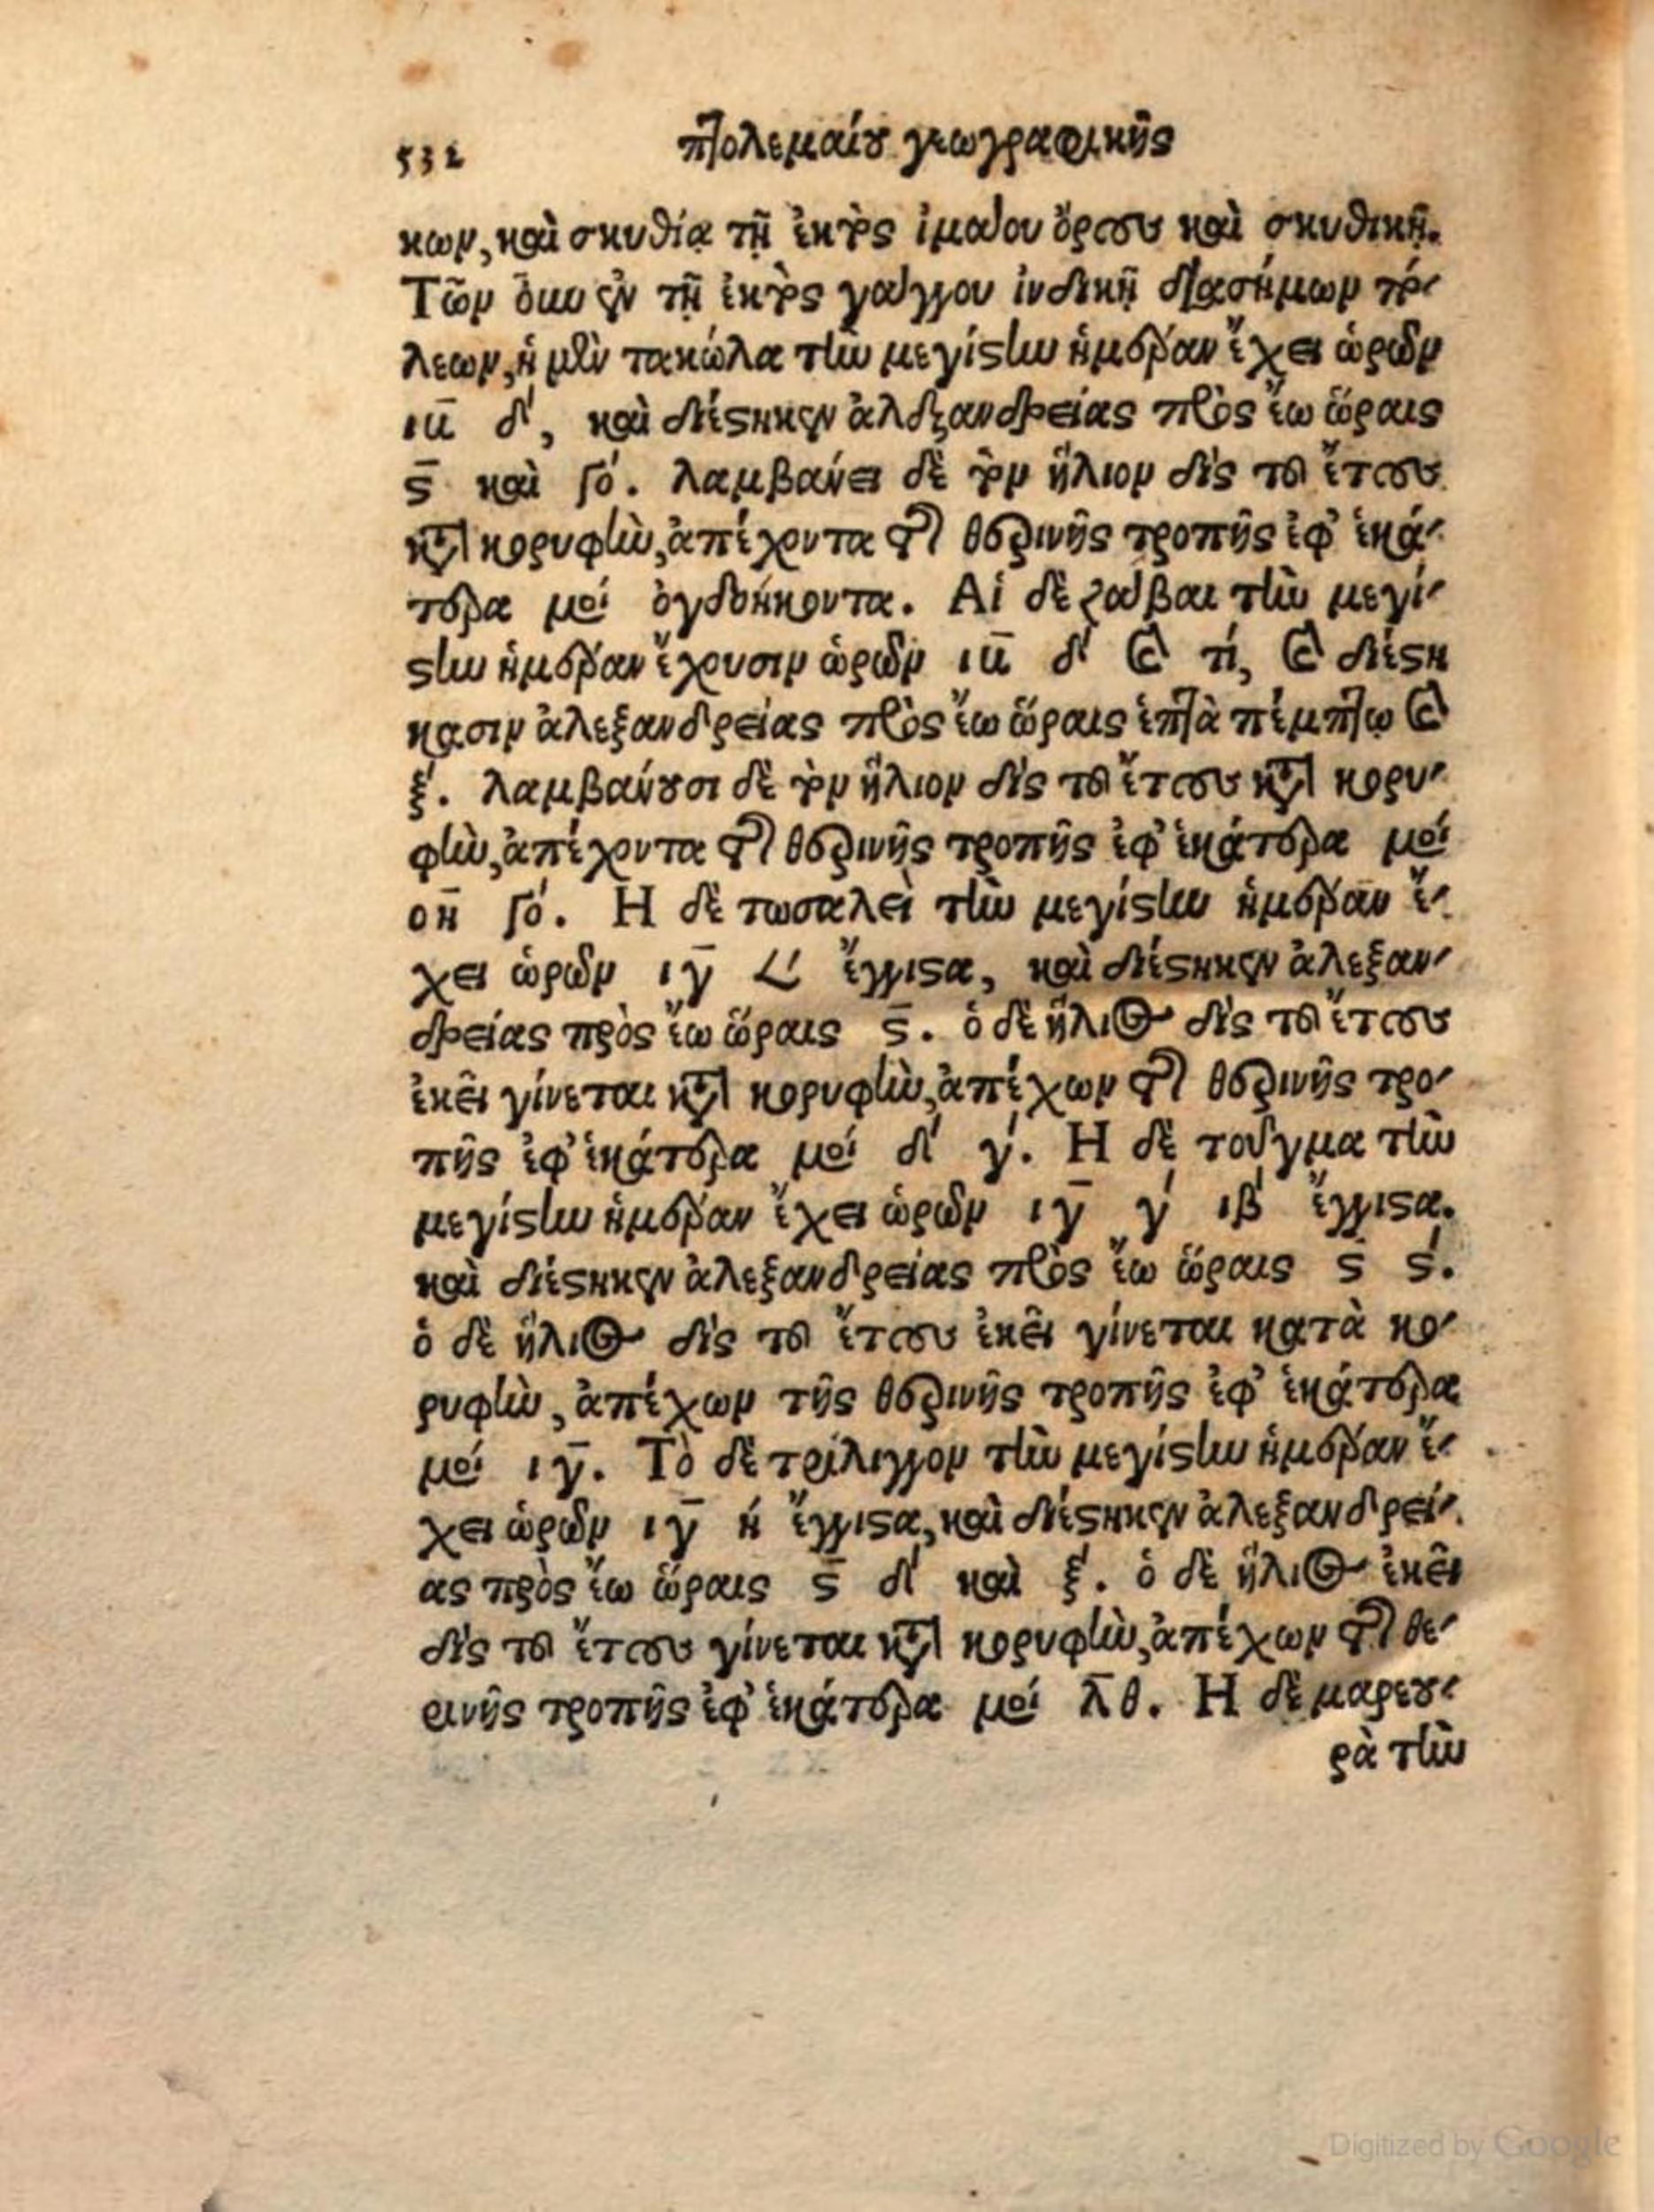 532 πτολεμαίου γεωγραφικῆς
κων, καὶ σκυθίᾳ τῇ ἐκτὸς ἰμαΐου ὄρους καὶ σκυθικῇ.
Τῶν οὖν ἐν τῇ ἐκτὸς γαΐγγου ἰνδικῇ διασήμων πό-
λεων, ἡ μὲν τακώλα τὴν μεγίστην ἡμέραν ἔχει ὡρῶν
ιβ̄ δ', καὶ διέστηκεν ἀλεξανδρείας πρὸς ἕω ὥραις
ϛ̄ καὶ γό. λαμβάνει δὲ τὸν ἥλιον δὶς τοῦ ἔτους
κατὰ κορυφὴν, ἀπέχοντα τῆς θερινῆς τροπῆς ἐφ' ἑκά-
τερα μοί ὀγδοήκοντα. Αἱ δὲ ζάβαι τὴν μεγί-
στην ἡμέραν ἔχουσιν ὡρῶν ιβ̄ δ' καὶ τί, καὶ διεστή
κασιν ἀλεξανδρείας πρὸς ἕω ὥραις ἑπτὰ πέμπτῳ καὶ
ξ'. λαμβάνουσι δὲ τὸν ἥλιον δὶς τοῦ ἔτους κατὰ κορυ-
φὴν, ἀπέχοντα τῆς θερινῆς τροπῆς ἐφ' ἑκάτερα μοί
οη̄ γό. Η δὲ τωσαλεὶ τὴν μεγίστην ἡμέραν ἔ-
χει ὡρῶν ιγ̄ 𐅵' ἔγγιστα, καὶ διέστηκεν ἀλεξαν-
δρείας πρὸς ἕω ὥραις ϛ̄. ὁ δὲ ἥλιος δὶς τοῦ ἔτους
ἐκεῖ γίνεται κατὰ κορυφὴν, ἀπέχων τῆς θερινῆς τρο-
πῆς ἐφ' ἑκάτερα μοί δ' γ'. Η δὲ τούγμα τὴν
μεγίστην ἡμέραν ἔχει ὡρῶν ιγ̄ γ' ιβ' ἔγγιστα.
καὶ διέστηκεν ἀλεξανδρείας πρὸς ἕω ὥραις ϛ̄ ϛ'.
ὁ δὲ ἥλιος δὶς τοῦ ἔτους ἐκεῖ γίνεται κατὰ κο-
ρυφὴν, ἀπέχων τῆς θερινῆς τροπῆς ἐφ' ἑκάτερα
μοί ιγ̄. Τὸ δὲ τρίλιγγον τὴν μεγίστην ἡμέραν ἔ-
χει ὡρῶν ιγ̄ ή ἔγγιστα, καὶ διέστηκεν ἀλεξανδρεί-
ας πρὸς ἕω ὥραις ϛ̄ δ' καὶ ξ'. ὁ δὲ ἥλιος ἐκεῖ
δὶς τοῦ ἔτους γίνεται κατὰ κορυφὴν, ἀπέχων τῆς θε-
ρινῆς τροπῆς ἐφ' ἑκάτερα μοί λ̄θ. Η δὲ μαρεου-
ρὰ τὴν
Digitized by Google